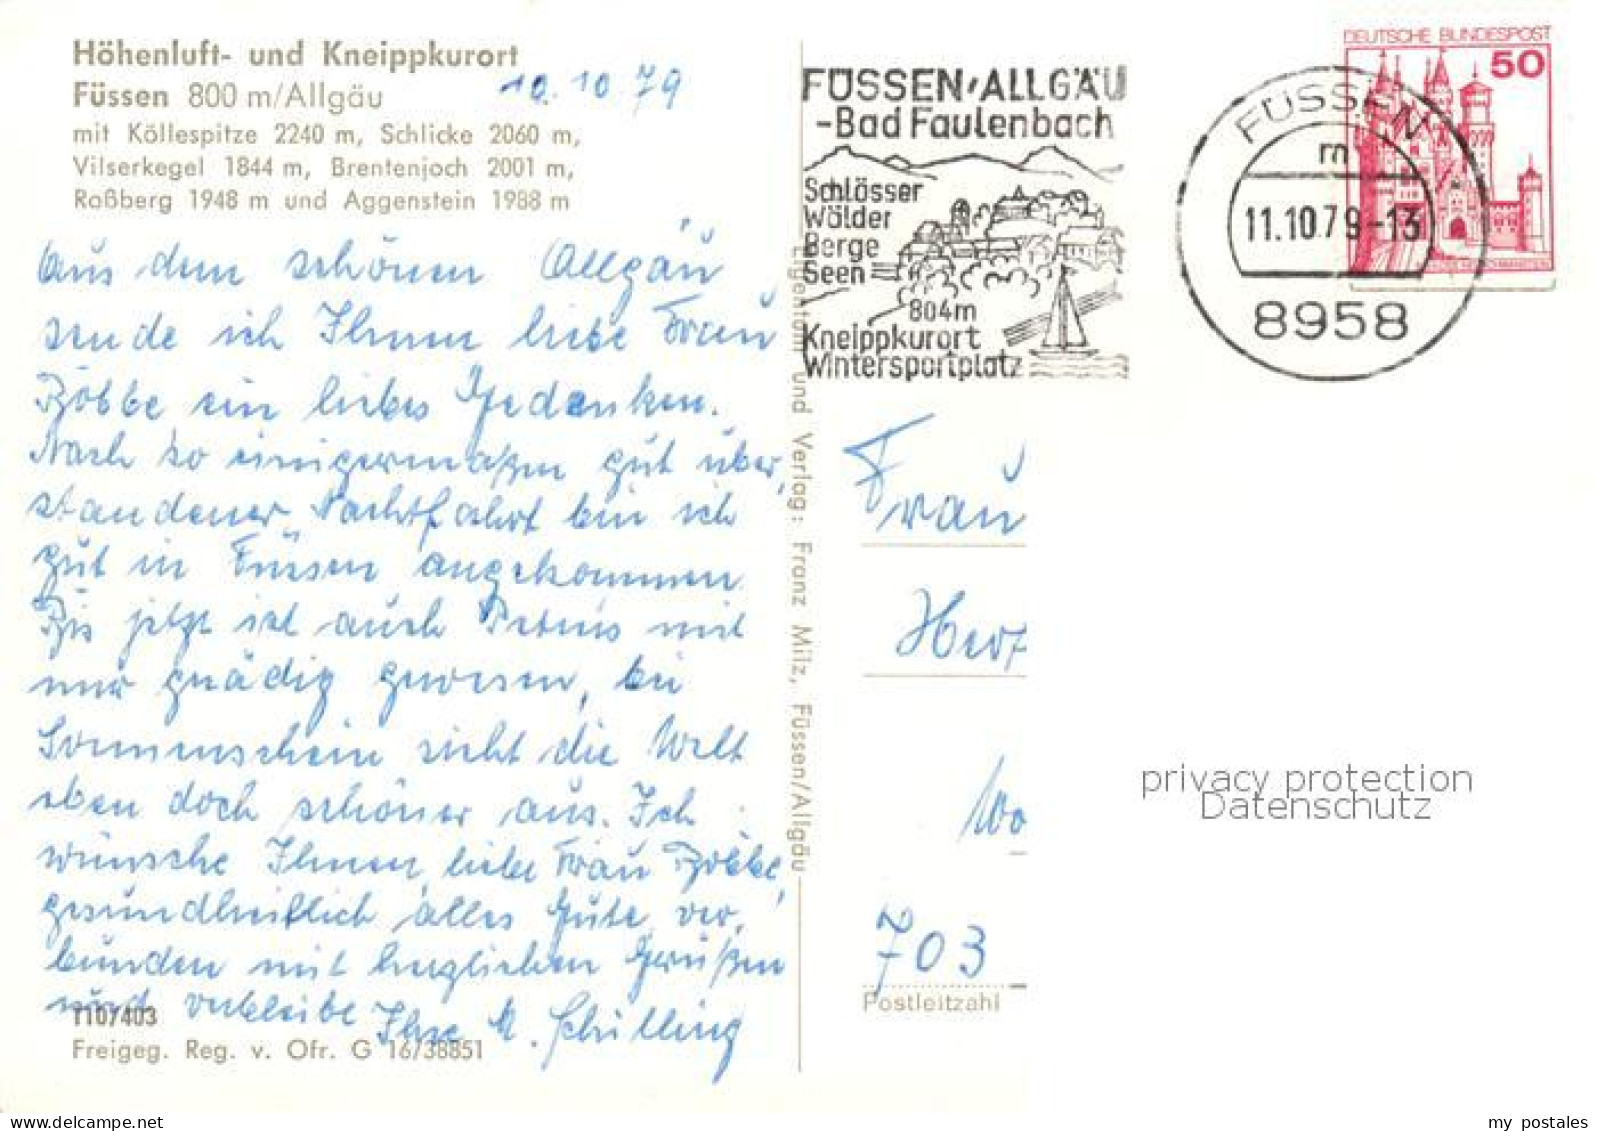 Höhenluft- und Kneippkurort
Füssen 800 m/Allgäu
10. 10. 79
mit Köllespitze 2240 m, Schlicke 2060 m,
Vilserkegel 1844 m, Brentenjoch 2001 m,
Roßberg 1948 m und Aggenstein 1988 m
Aus dem schönen Allgäu
sende ich Ihnen liebe Frau
Böbbe ein liebes Gedenken.
Nach so einigermaßen gut über,
standener Nachtfahrt bin ich
gut in Füssen angekommen.
Bis jetzt ist auch Petrus mit
mir gnädig gewesen, bei
Sonnenschein sieht die Welt
eben doch schöner aus. Ich
wünsche Ihnen, liebe Frau Böbbe,
gesundheitlich alles Gute, ver,
bunden mit herzlichen Grüßen
und verbleibe Ihre M. Schilling
1107403
Freigeg. Reg. v. Ofr. G 16/38851
Eigentum und Verlag: Franz Milz, Füssen/Allgäu
FÜSSEN/ALLGÄU
-Bad Faulenbach
Schlösser
Wälder
Berge
Seen
804m
Kneippkurort
Wintersportplatz
FÜSSEN
m
11.10.79-13
8958
DEUTSCHE BUNDESPOST
50
Frau
703
Postleitzahl
privacy protection
Datenschutz
my postales